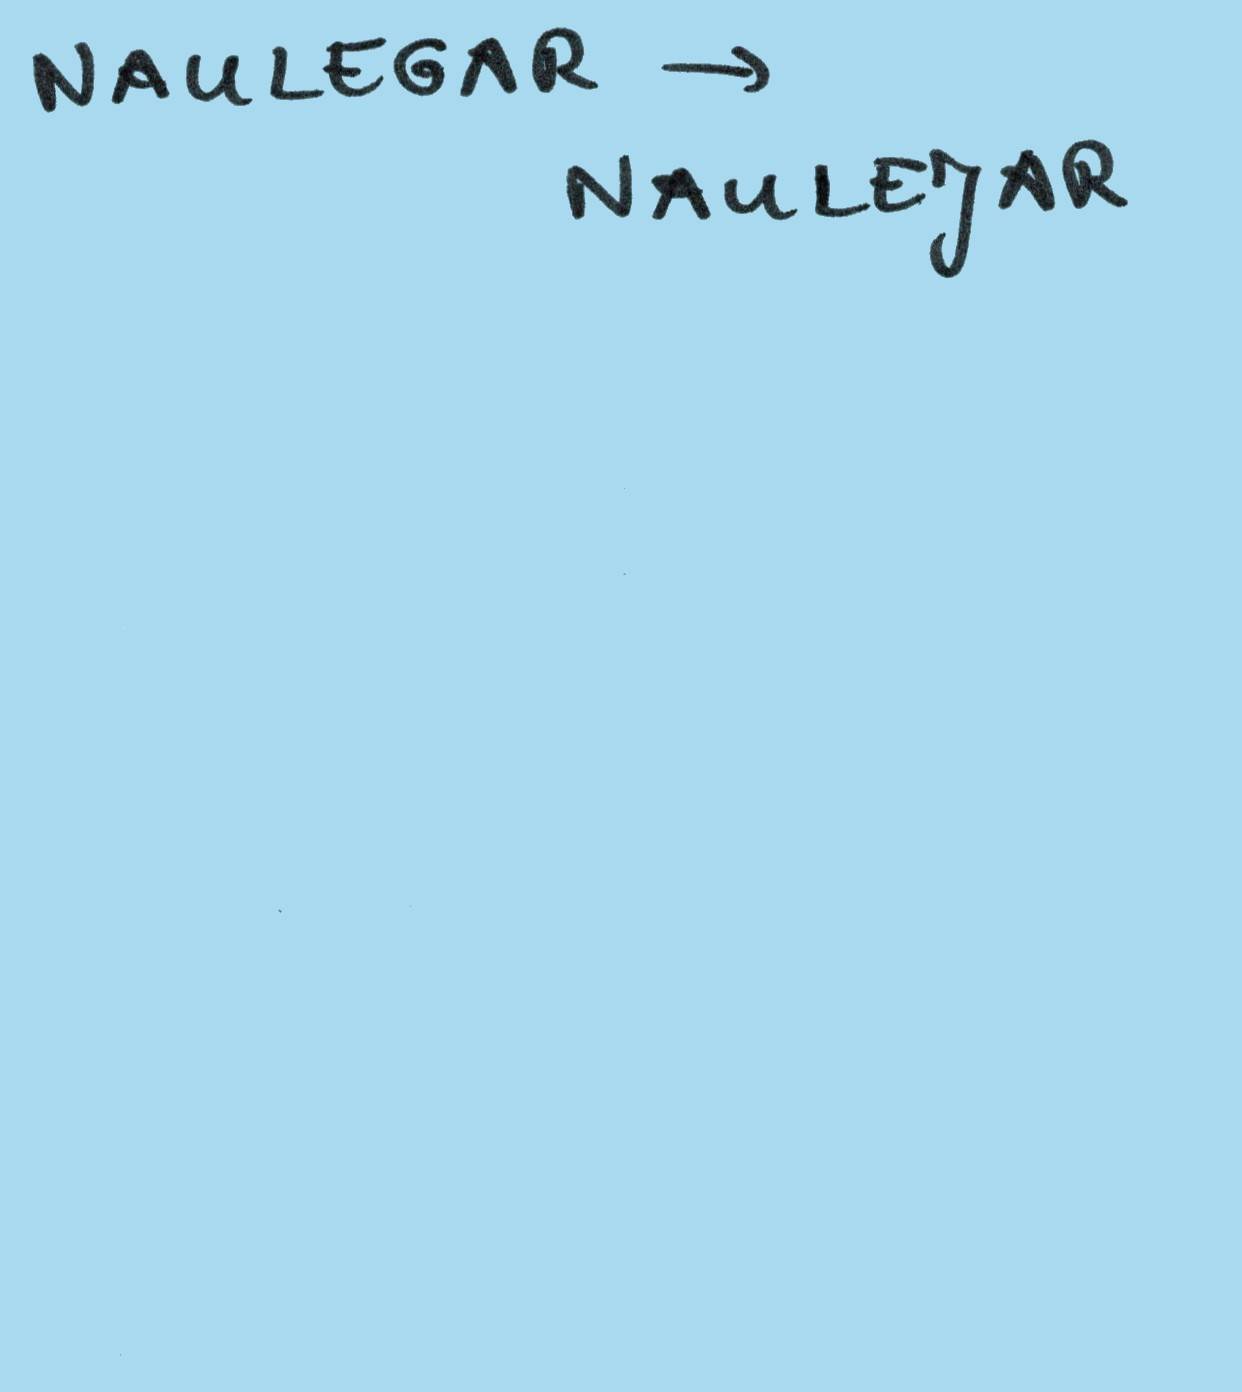 NAULEGAR →
NAULEJAR